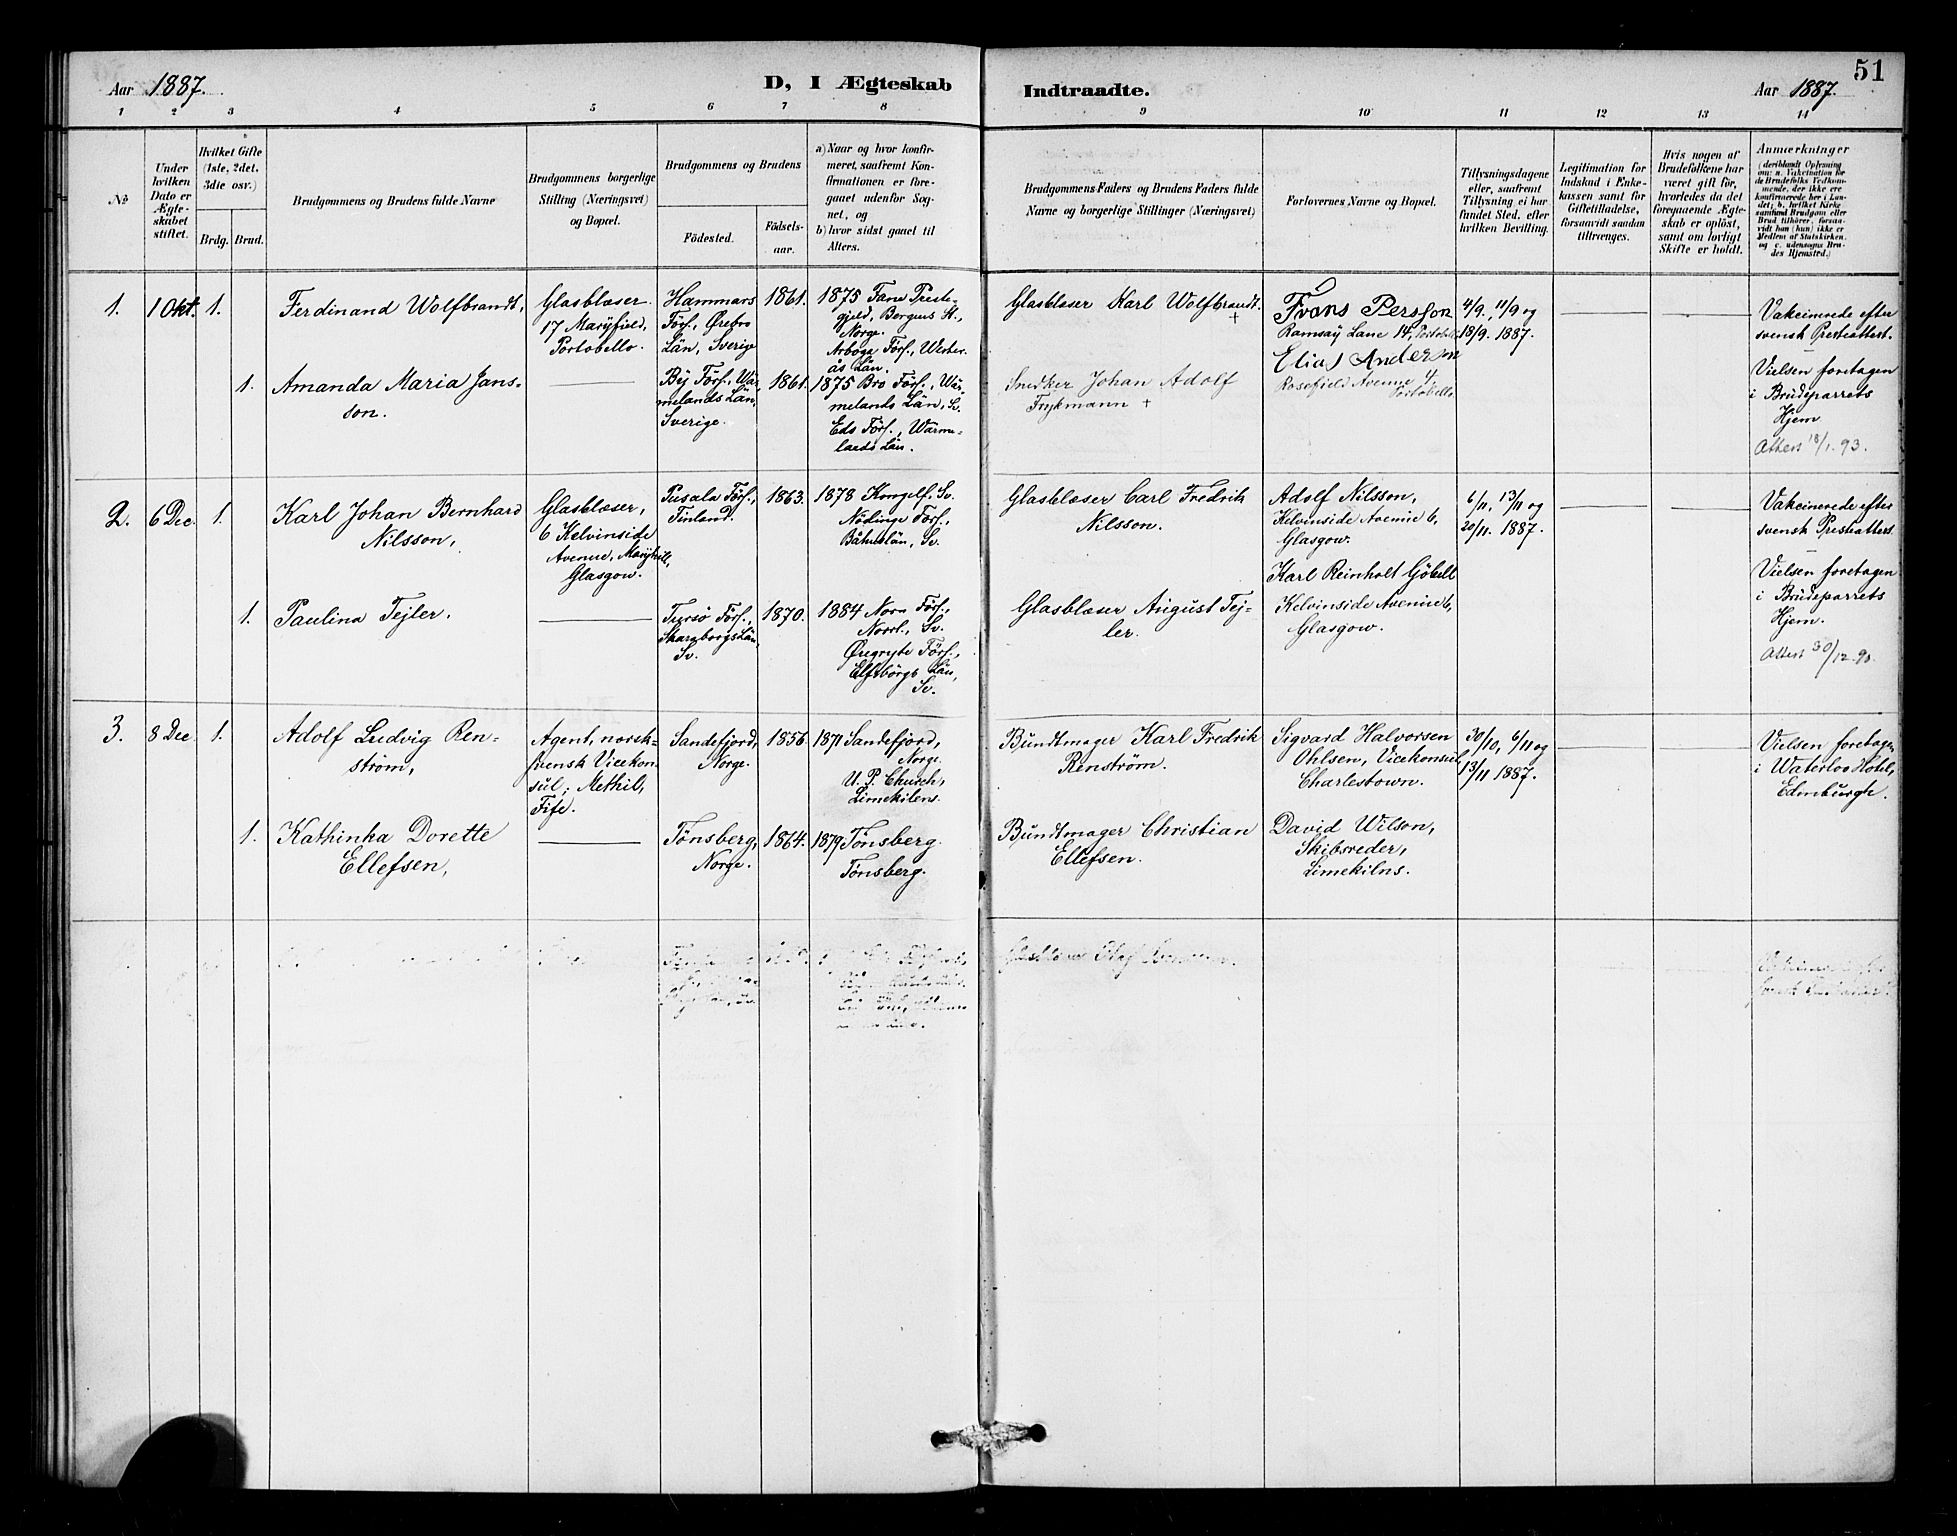 Aar 1887.
D, I Ægteskab
Indtraadte.
Aar 1887.
51
1 2 3 4 5 6 7 8 9 10 11 12 13 14
No
Under
hvilken
Dato er
Ægte-
skabet
stiftet.
Hvilket Gifte
(1ste, 2det,
3die osv.)
Brdg. Brud.
Brudgommens og Brudens fulde Navne
Brudgommens borgerlige
Stilling (Næringsvei)
og Bopæl.
Brudgommens og Brudens
Födested.
Födsels-
aar.
a) Naar og hvor konfir-
meret, saafremt Kon-
firmationen er fore-
gaaet udenfor Sog-
net, og
b) hvor sidst gaaet til
Alters.
Brudgommens Faders og Brudens Faders fulde
Navne og borgerlige Stillinger (Næringsvei)
Forlovernes Navne og Bopæl.
Tillysningsdagene
eller, saafremt
Tillysning ei har
fundet Sted, efter
hvilken Bevilling.
Legitimation for
Indskud i Enke-
kassen samt for
Giftetilladelse,
forsaavidt saadan
tiltrænges.
Hvis nogen af
Brudefolkene har
været gift før,
hvorledes da det
foregaaende Ægte-
skab er oplöst,
samt om lovligt
Skifte er holdt.
Anmærkninger
(deriblandt Oplysning
om: a. Vakcination for
de Brudefolks Vedkom-
mende, der ikke ere
konfirmerede her i Lan-
det; b. hvilket Kirke-
samfund Brudgom eller
Brud tilhörer, forsaa-
vidt han (hun) ikke er
Medlem af Statskirken,
og c. udensogns Bru-
des Hjemsted.)
1. 1 Okt. 1.
Ferdinand Wolfbrandt,
Glasblæser.
17 Maryfield,
Portobello.
Hammars
Förs., Örebro
Län, Sverige
1861.
1875 Fane Preste-
gjeld, Bergens St.,
Norge.
Arboga Förs., Wester-
ås Län.
Glasblæser Karl Wolfbrandt.
+
Frans Persson
Ramsay Lane 14, Portobello
Elias Anderson
Rosefield Avenue 4
Portobello
4/9., 11/9 og
18/9. 1887.
Vakcinerede efter
svensk Presteattest.
Vielsen foretagen
i Brudeparrets
Hjem
Attest 18/1. 93.
1.
Amanda Maria Jans-
son.
By Förs., Wär-
melands Län,
Sverige.
1861.
1875 Bro Förs., Wär-
melands Län, Sv.
Eds Förs., Wärme-
lands Län.
Snedker Johan Adolf
Frykmann +
2. 6 Dec. 1.
Karl Johan Bernhard
Nilsson,
Glasblæser,
6 Kelvinside
Avenue, Maryhill,
Glasgow.
Pusala Förs.,
Finland.
1863.
1878 Kongelf, Sv.
Nödinge Förs.,
Båhuslän, Sv.
Glasblæser Carl Fredrik
Nilsson.
Adolf Nilsson,
Kelvinside Avenue 6,
Glasgow.
Karl Reinholt Göbell
Kelvinside Avenue 6,
Glasgow.
6/11, 13/11 og
20/11. 1887.
Vakcinerede efter
svensk Presteattest
Vielsen foretagen
i Brudeparrets
Hjem.
Attest 30/12. 90.
1.
Paulina Tejler.
Fursö Förs.,
Skaraborgs Län,
Sv.
1870.
1884 Nora Förs.,
Norrl., Sv.
Öregryte Förs.,
Elfsborgs Län,
Sv.
Glasblæser August Tej-
ler.
3. 8 Dec. 1.
Adolf Ludvig Ren-
strøm,
Agent, norsk-
svensk Vicekon-
sul; Methil,
Fife.
Sandefjord,
Norge.
1856.
1871 Sandefjord,
Norge.
U. P. Church,
Limekilens.
Bundtmager Karl Fredrik
Renstrøm.
Sigvard Halvorsen
Ohlsen, Vicekonsul,
Charlestown.
30/10, 6/11 og
13/11 1887.
Vielsen foretagen
i Waterloo Hotel,
Edinburgh.
1.
Kathinka Dorette
Ellefsen,
Tønsberg,
Norge.
1864.
1879 Tønsberg.
Tønsberg.
Bundtmager Christian
Ellefsen.
David Wilson,
Skibsreder,
Limekilns.